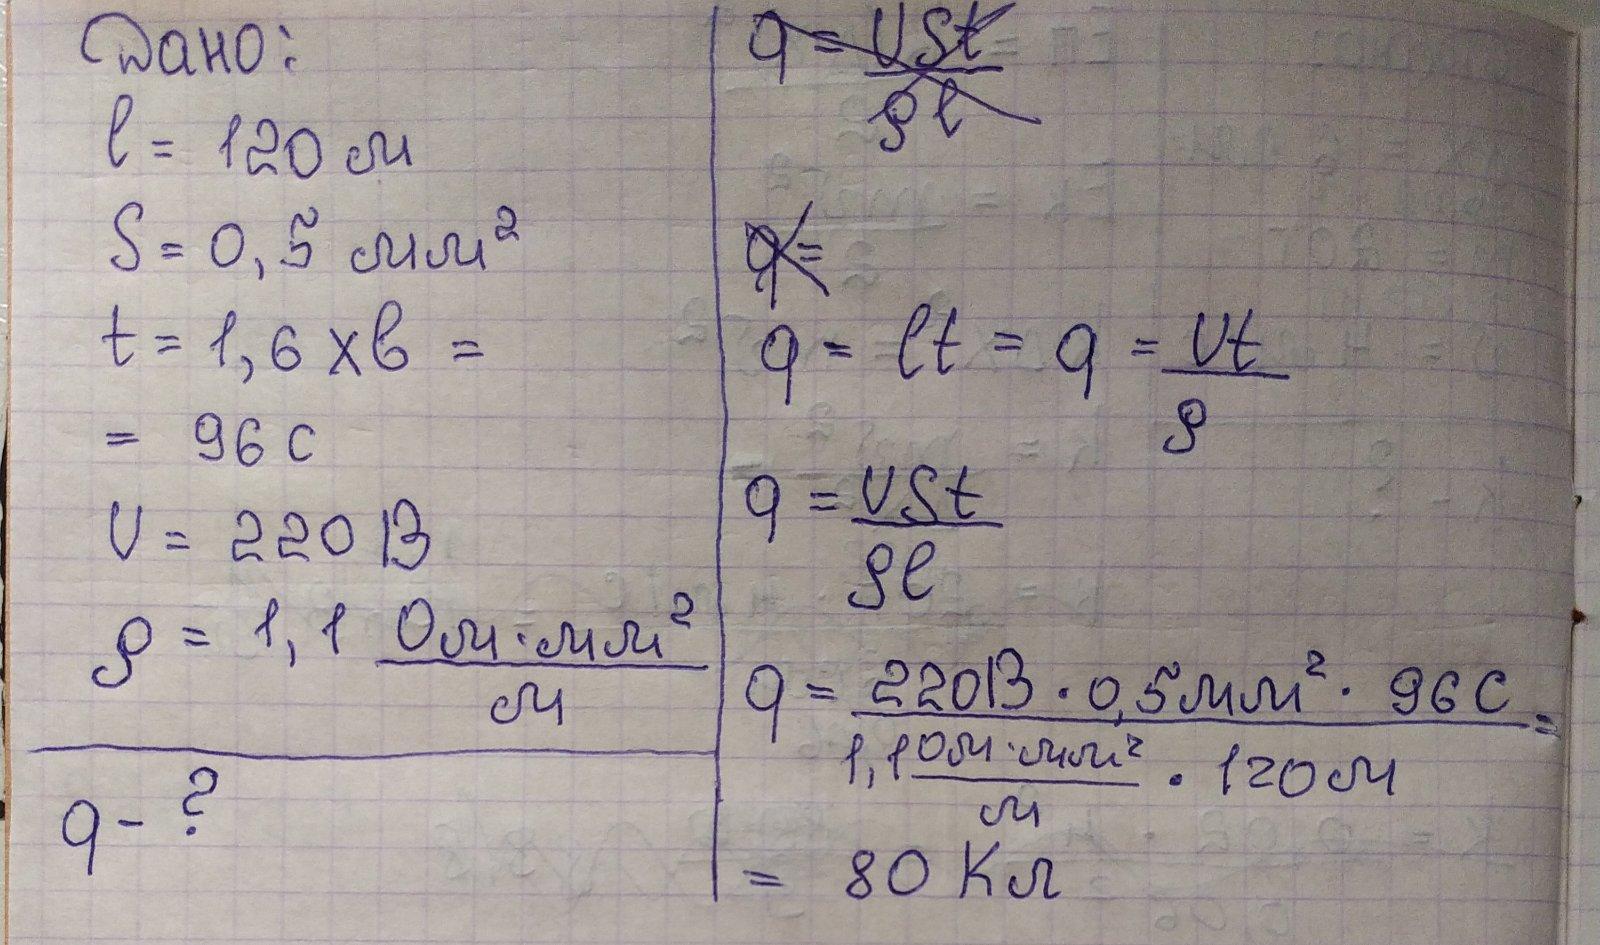 Дано:
l = 120 м
S = 0,5 мм²
t = 1,6 хв =
= 96 с
U = 220 В
ρ = 1,1 Ом·мм²/м
q - ?
q = USt/ρl
q =
q = lt = q = Ut/ρ
q = USt/ρl
q = 220В · 0,5мм² · 96 с / 1,1 Ом·мм²/м · 120м =
= 80 Кл